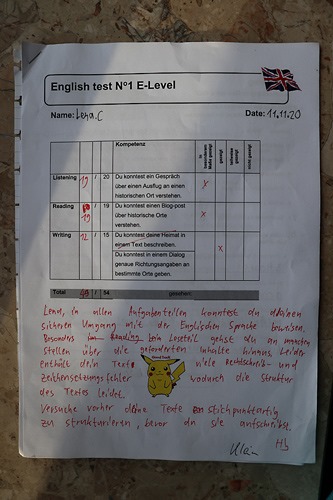 English test N°1 E-Level
Name: Lena.C Date: 11.11.20
Kompetenz
in besonderem Maße gezeigt
gezeigt
teilweise gezeigt
nicht gezeigt
Listening 19 / 20 Du konntest ein Gespräch
über einen Ausflug an einen
historischen Ort verstehen. x
Reading 19 / 19 Du konntest einen Blog-post
über historische Orte
verstehen. x
Writing 12 / 15 Du konntest deine Heimat in
einem Text beschreiben. x
Du konntest in einem Dialog
genaue Richtungsangaben an
bestimmte Orte geben.
Total / 54 gesehen:
Lena, in allen Aufgabenteilen konntest du deinen
sicheren Umgang mit der Englischen Sprache beweisen.
Besonders im Reading beim Leseteil gehst du an manchen
Stellen über die geforderten Inhalte hinaus. Leider
enthält dein Text viele Rechtschreib- und
Zeichensetzungsfehler wodurch die Struktur
des Textes leidet.
Versuche vorher deine Texte stichpunktartig
zu strukturieren, bevor du sie aufschreibst.